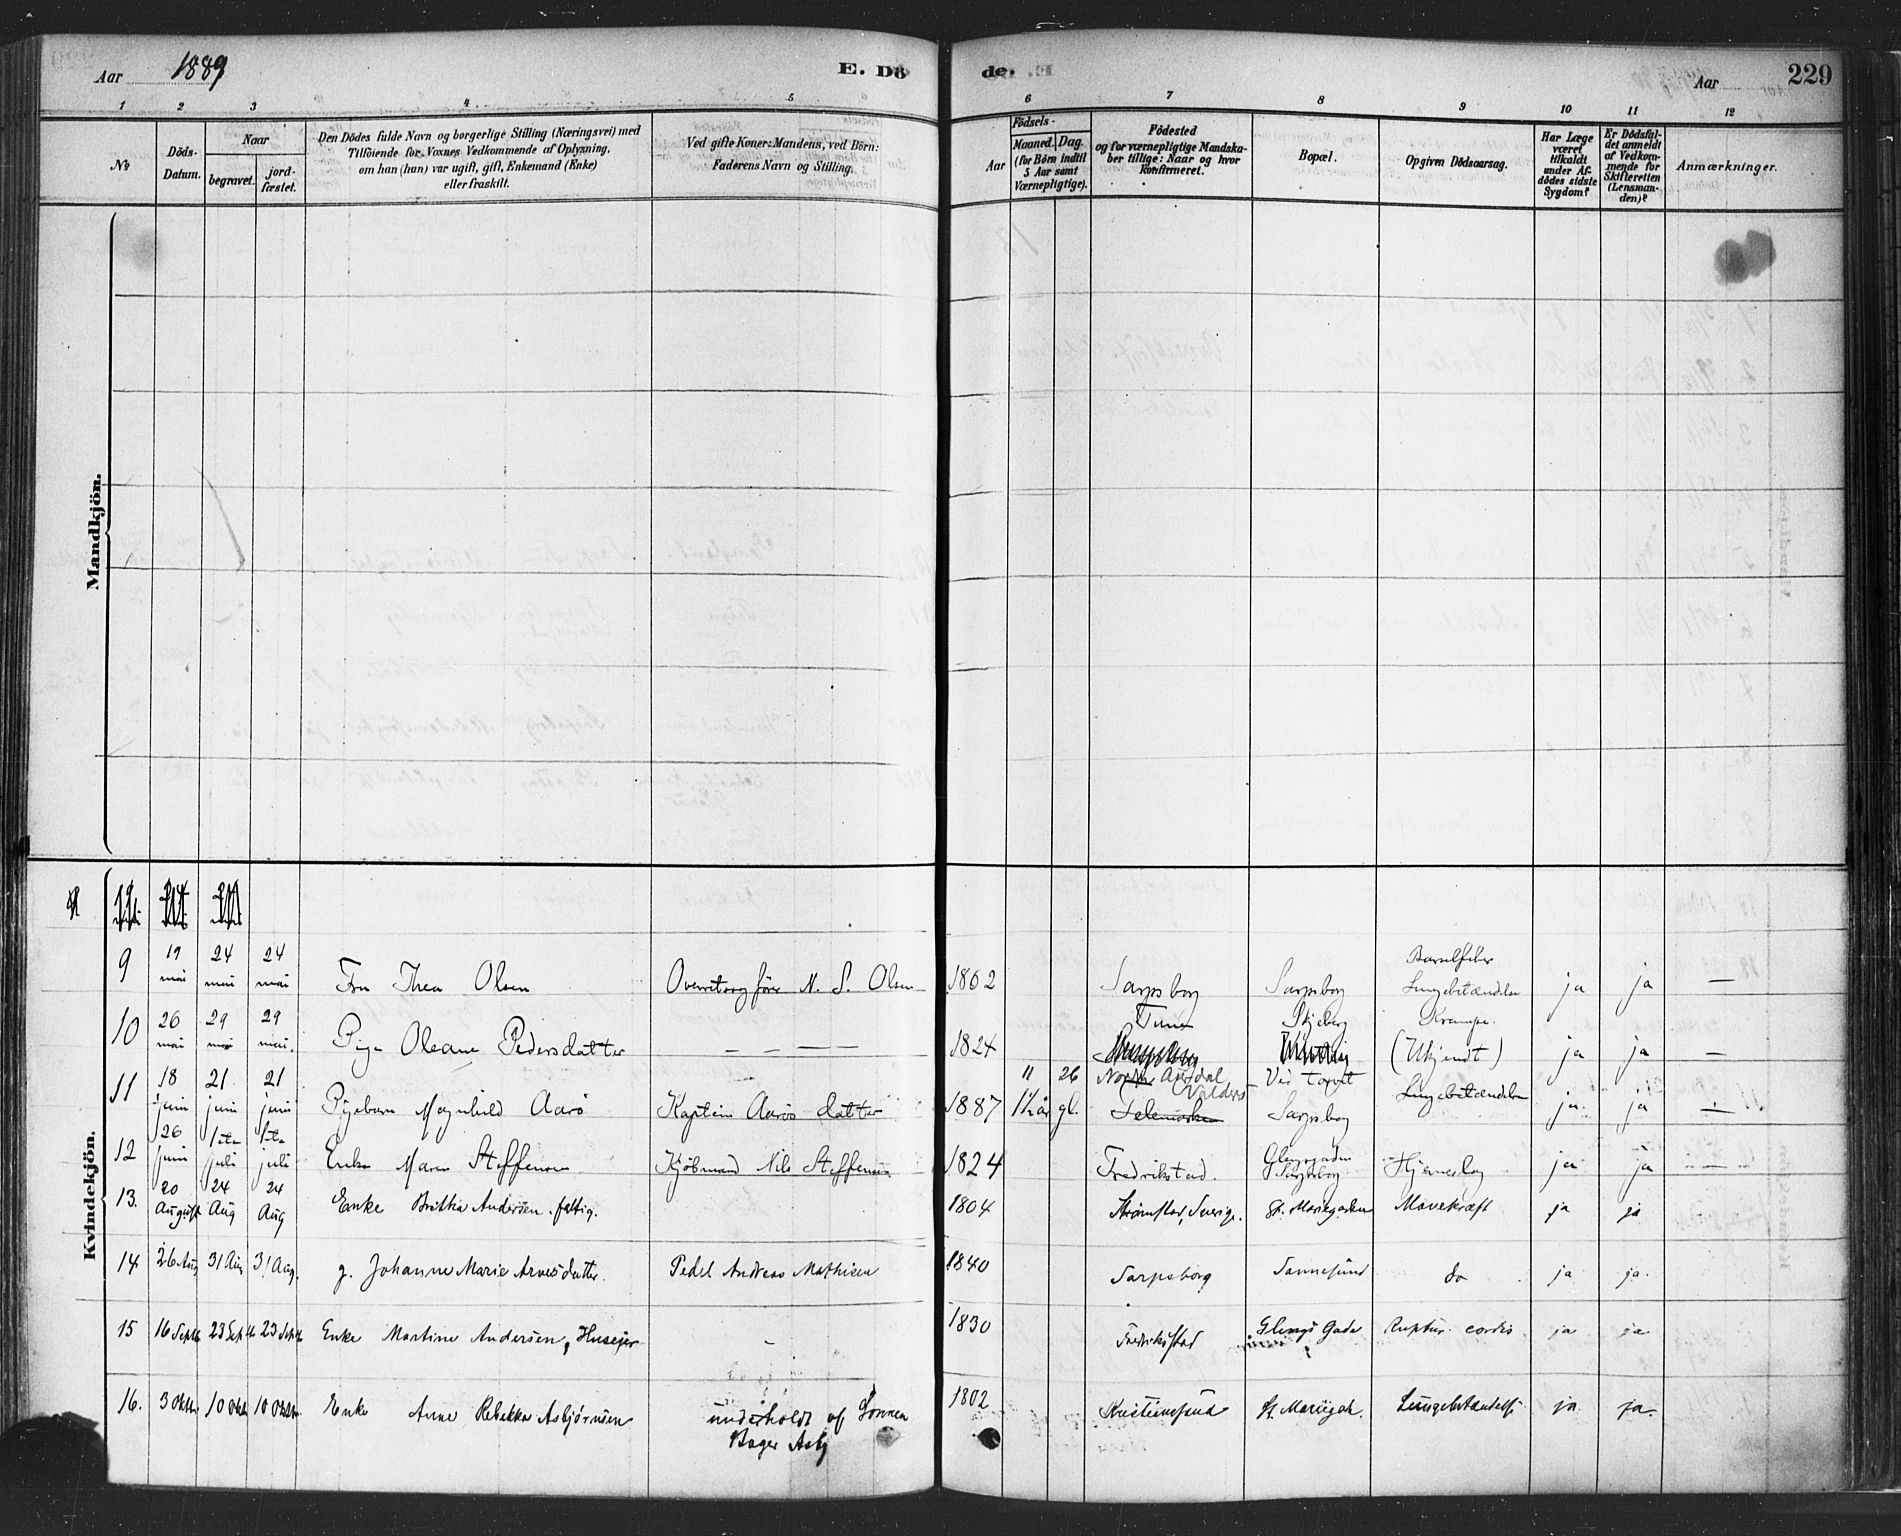 Aar 1889 E. Dö
de. Aar 229
1 2 3 4 5
6 7 8 9 10 11 12
No
Döds-Datum.
Naar
begravet.
jord-fæstet.
Den Dödes fulde Navn og borgerlige Stilling (Næringsvei) med
Tilföiende for Voxnes Vedkommende af Oplysning,
om han (hun) var ugift, gift, Enkemand (Enke)
eller fraskilt.
Ved gifte Koner: Mandens, ved Börn:
Faderens Navn og Stilling.
Födsels-
Aar
Maaned. Dag.
(for Börn indtil
5 Aar samt
Værnepligtige).
Födested
og for værnepligtige Mandska-
ber tillige: Naar og hvor
konfirmeret.
Bopæl.
Opgiven Dödsaarsag.
Har Læge
været
tilkaldt
under Af-
dödes sidste
Sygdom?
Er Dödsfal-
det anmeldt
af Vedkom-
mende for
Skifteretten
(Lensman-
den)?
Anmærkninger.
Mandkjön.
Kvindekjön.
9 19 mai 24 mai 24 mai Fru Thea Olsen N. S. Olsen 1862 Sarpsborg Sarpsborg Barselfeber Lungebetændelse ja ja —
10 26 mai 29 mai 29 mai. Pige Oleane Pedersdatter — — — — 1824 Tune Skjeberg Krampe. (Ukjendt) ja ja —
11 18 juni 21 juni 21 juni Pigebarn Magnhild Aarö Kaptein Aarös datter 1887 11 26 1½ år gl. Aurdal Valders Telemarken Ved torvet Sarpsborg Lungebetændelse ja ja —
12 26 juni 1ste juli 1ste juli Enke Maren Steffensen Kjöbmand Nils Steffensen 1824 Fredrikstad. Glengsgaden Sarpsborg Hjerneslag ja ja —
13. 20 August 24 Aug 24 Aug Enke Britha Andersen. fattig. 1804 Strömstad, Sverige. St. Mariegaden Mavekræft ja ja
14. 26 Aug 31 Aug 31 Aug. g. Johanne Marie Arnesdatter. Pedel Andreas Mathisen 1840 Sarpsborg Sannesund do ja ja.
15 16 Septb 23 Septb 23 Septb Enke Martine Andersen, Huseier — 1830 Fredriksstad Glengs Gade Ruptur. cordis. ja ja
16. 3 Oktbr 10 Oktb 10 Oktbr Enke Anne Rebekka Asbjörnsen underholdt af Sönnen Bager Asbj 1802 Kristiansund St. Mariegad. Lungebetændelse ja ja.